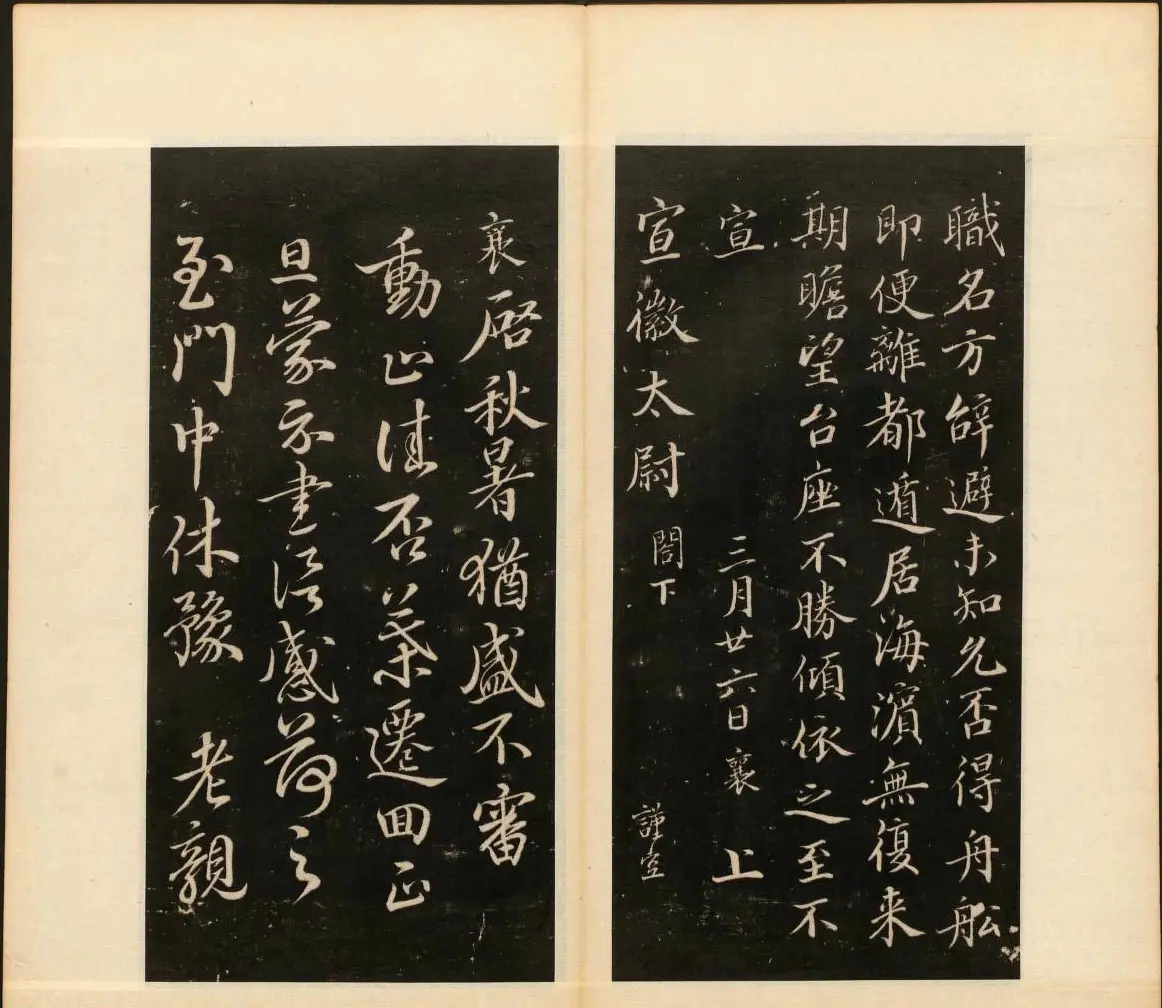 職名方辝避未知允否得舟舩
即便離都遁居海濱無復来
期瞻望台座不勝傾依之至不
宣 三月廿六日襄 上
宣徽太尉 閤下 謹空
襄啓秋暑猶盛不審
動止佳否葉遷回正
旦蒙示書誨感荷之
至門中休豫 老親